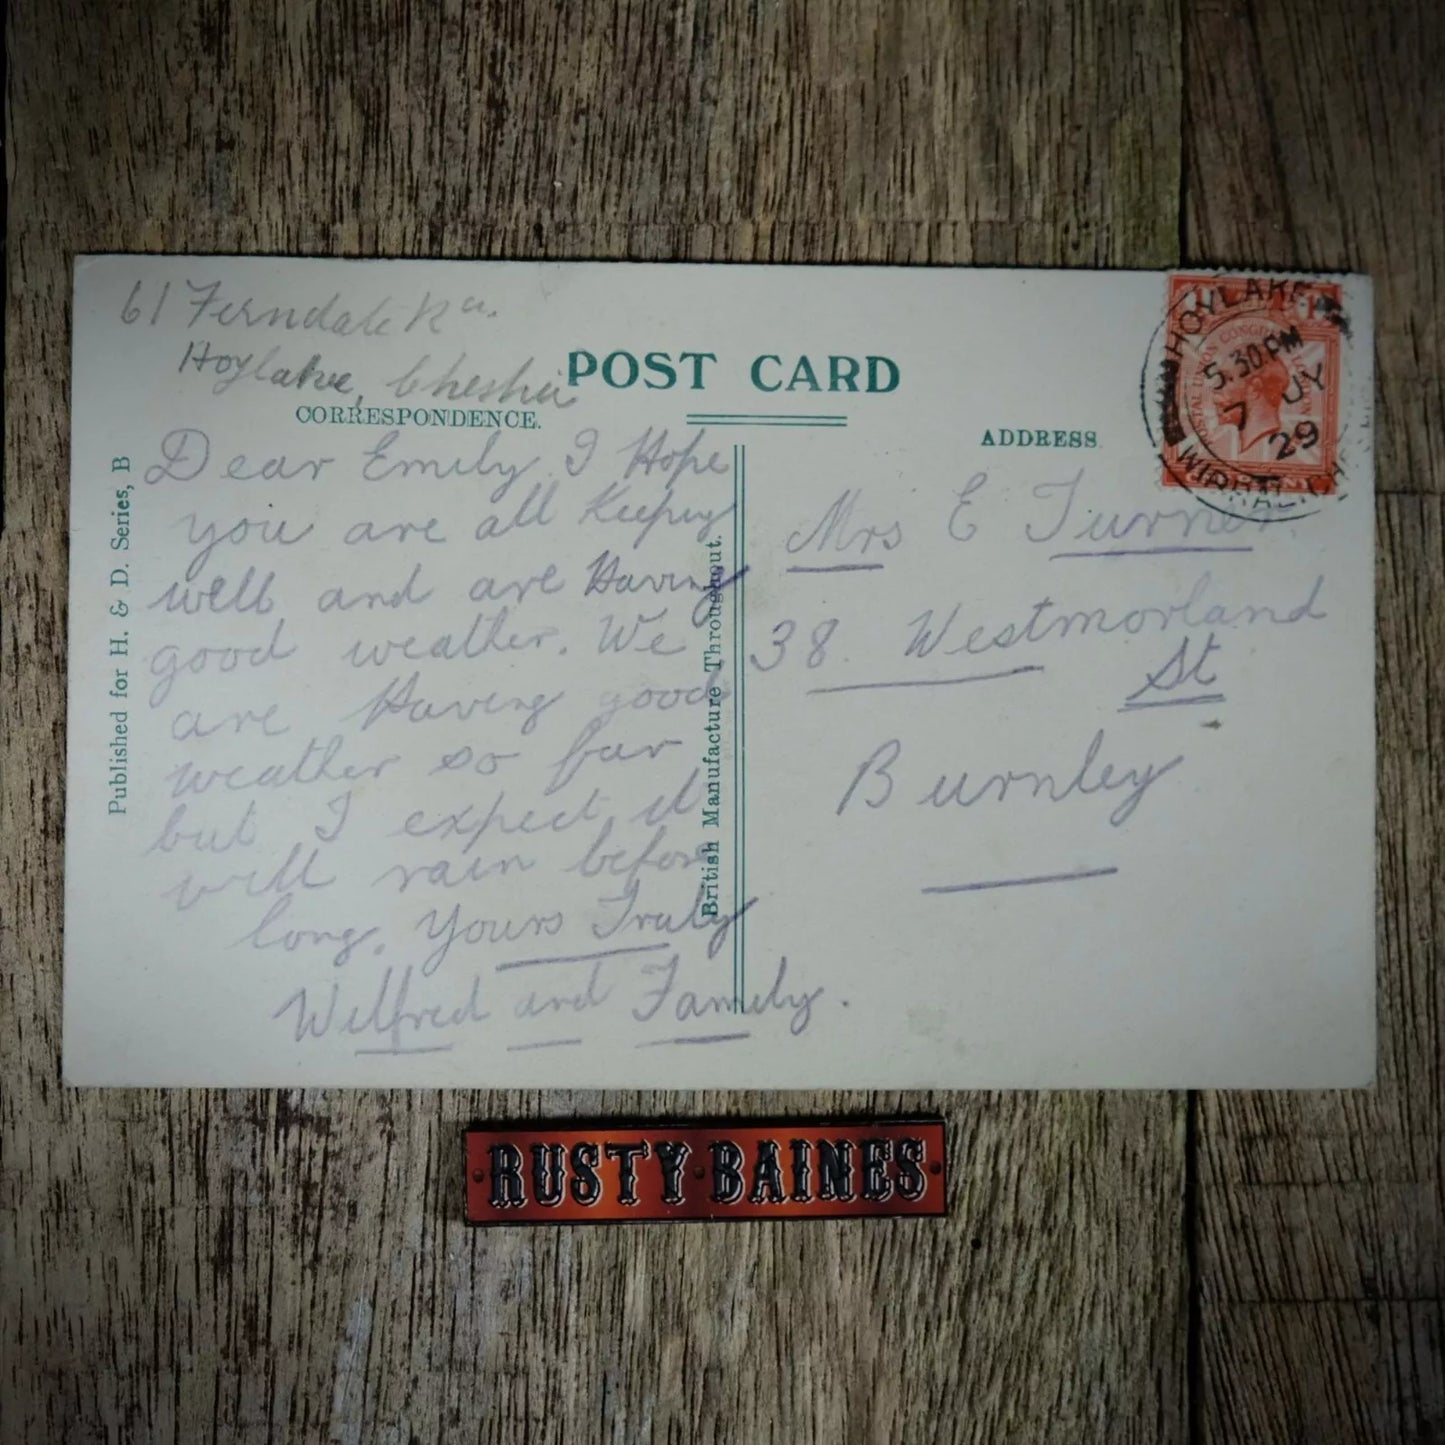 61 Ferndale Rd.
Hoylake, Cheshire
POST CARD
CORRESPONDENCE.
ADDRESS.
Published for H. & D. Series, B
British Manufacture Throughout.
Dear Emily I Hope
you are all Keeping
well and are Having
good weather. We
are Having good
weather so far
but I expect it
will rain before
long. Yours Truly
Wilfred and Family.
Mrs E Turner.
38. Westmorland
St
Burnley
HOYLAKE
5.30 PM
7 JY
29
WIRRAL
RUSTY BAINES